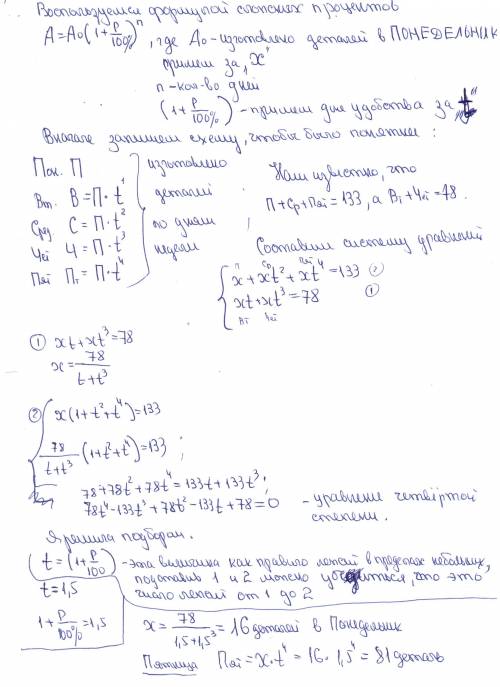 Воспользуемся формулой сложных процентов
A=A₀(1+P/100%)ⁿ, где A₀-изготовлено деталей в ПОНЕДЕЛЬНИК
примем за "x"
n-кол-во дней
(1+P/100%)-примем для удобства за "t"
Вначале запишем схему, чтобы было понятнее:
Пон. П
Вт. В=П·t¹
Сред С=П·t²
Чет Ч=П·t³
Пят Пт=П·t⁴
изготовлено
деталей
по дням
недели
Нам известно, что
П+Ср+Пят=133, а Вт+Чет=78.
Составим систему уравнений
П Ср Пят
x+xt²+xt⁴=133 ②
xt+xt³=78 ①
Вт Чет
① xt+xt³=78
x=78/(t+t³)
② x(1+t²+t⁴)=133
78/(t+t³) (1+t²+t⁴)=133;
78+78t²+78t⁴=133t+133t³;
78t⁴-133t³+78t²-133t+78=0 - уравнение четвёртой
степени.
Я решила подбором.
t=(1+P/100) - эта величина как правило лежит в пределах небольших,
подставив 1 и 2 можно убедиться, что это
число лежит от 1 до 2
t=1,5
1+P/100%=1,5
x=78/(1,5+1,5³)=16 деталей в Понедельник
Пятница Пят=x·t⁴=16·1,5⁴=81 деталь